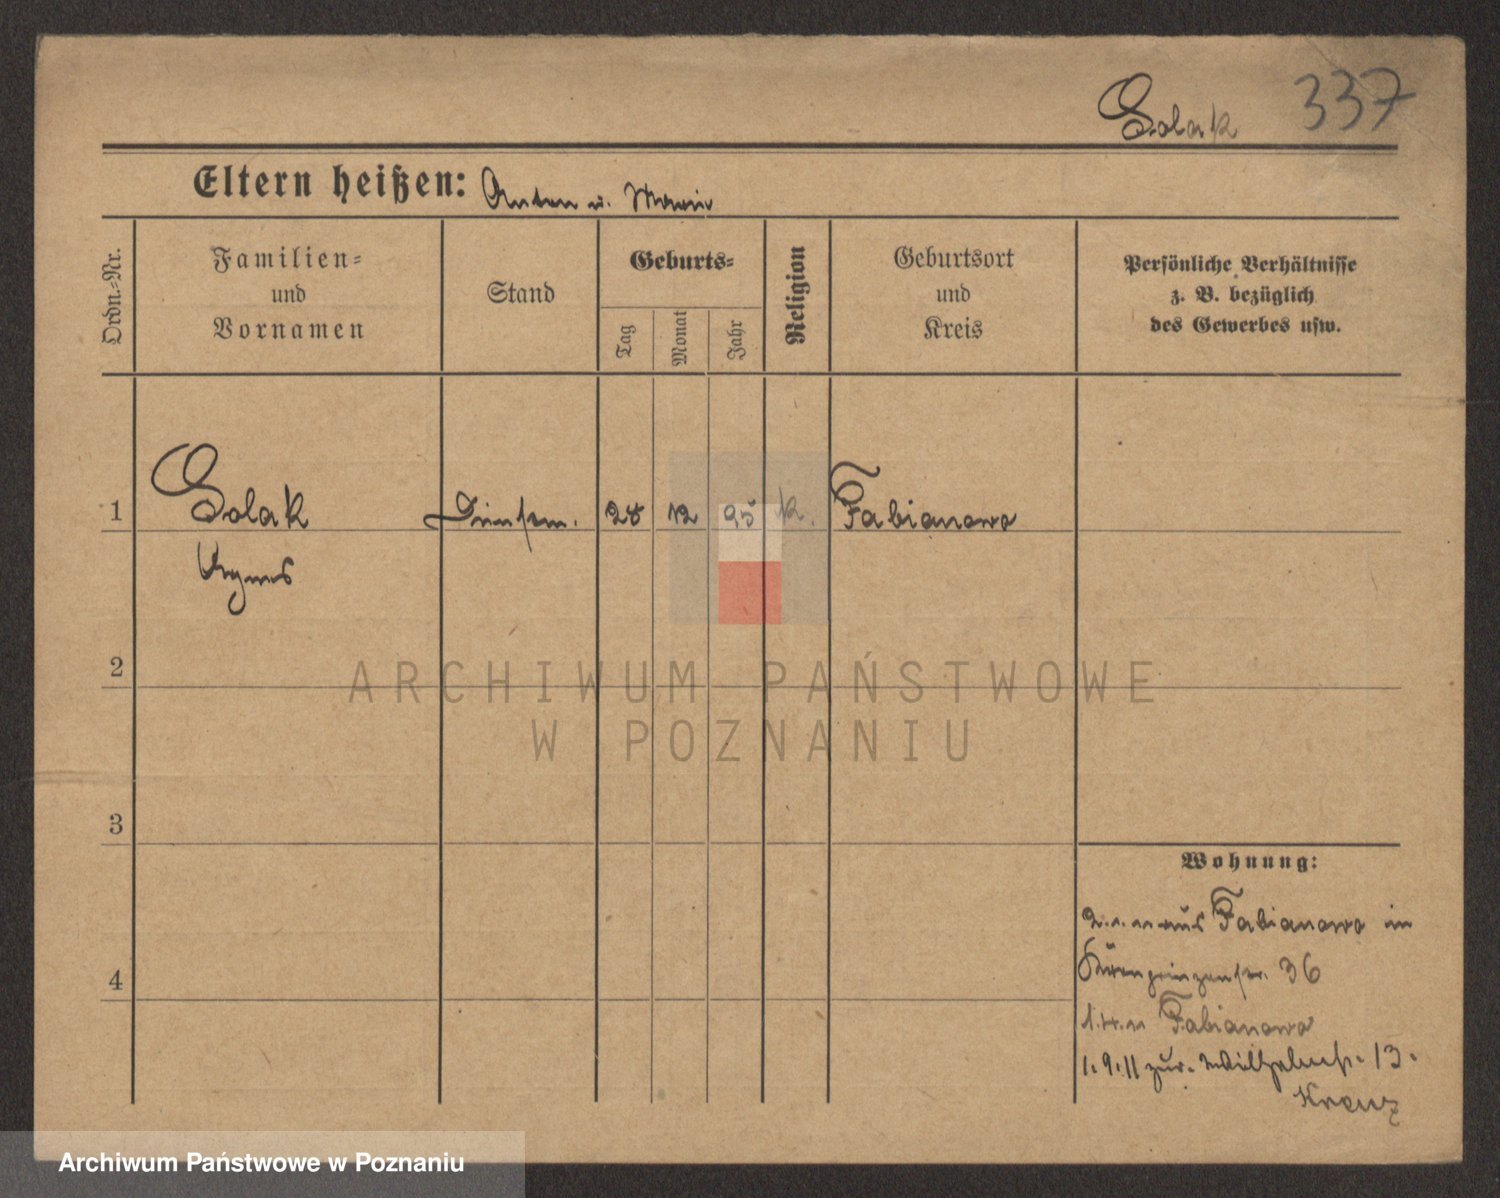 Solak 337
Eltern heißen: Anton u. Marie
Ordn.-Nr.
Familien-
und
Vornamen
Stand
Geburts-
Tag
Monat
Jahr
Religion
Geburtsort
und
Kreis
Persönliche Verhältnisse
z. B. bezüglich
des Gewerbes usw.
1 Solak Dienstm. 28 12 95 k. Fabianowo
Agnes
2
3
4
Wohnung:
aus Fabianowo in
Kronprinzenstr. 36
Fabianowo
1.9.11 zur. Wilhelmstr. 13.
ARCHIWUM PAŃSTWOWE
W POZNANIU
Archiwum Państwowe w Poznaniu